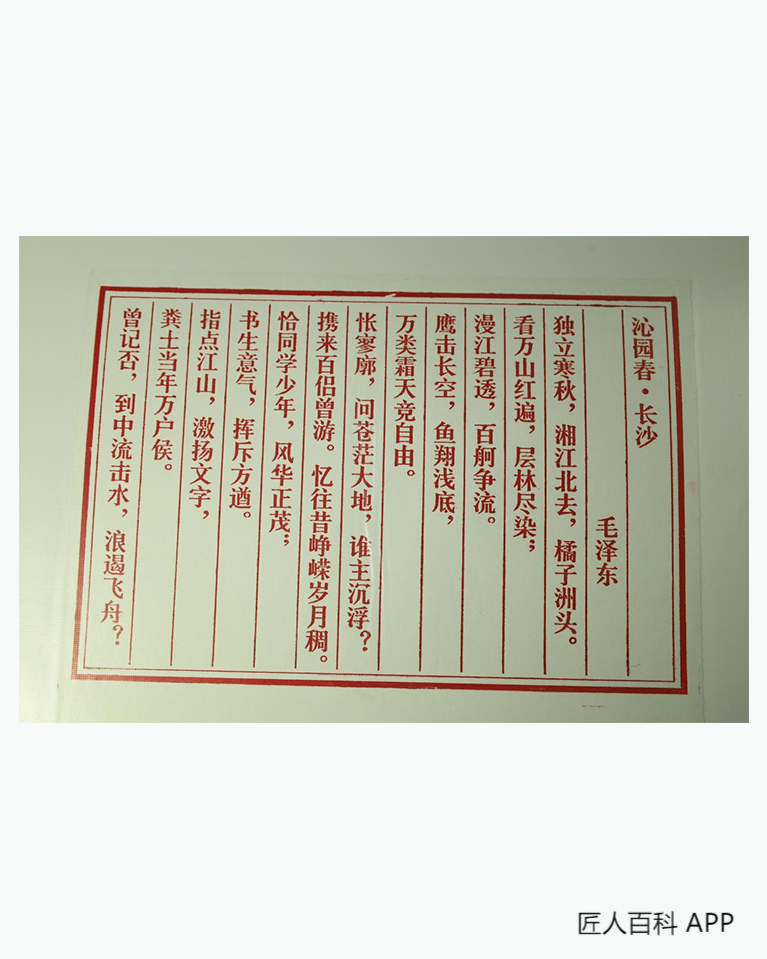 沁园春·长沙
毛泽东
独立寒秋，湘江北去，橘子洲头。
看万山红遍，层林尽染；
漫江碧透，百舸争流。
鹰击长空，鱼翔浅底，
万类霜天竞自由。
怅寥廓，问苍茫大地，谁主沉浮？
携来百侣曾游。忆往昔峥嵘岁月稠。
恰同学少年，风华正茂；
书生意气，挥斥方遒。
指点江山，激扬文字，
粪土当年万户侯。
曾记否，到中流击水，浪遏飞舟？
匠人百科 APP